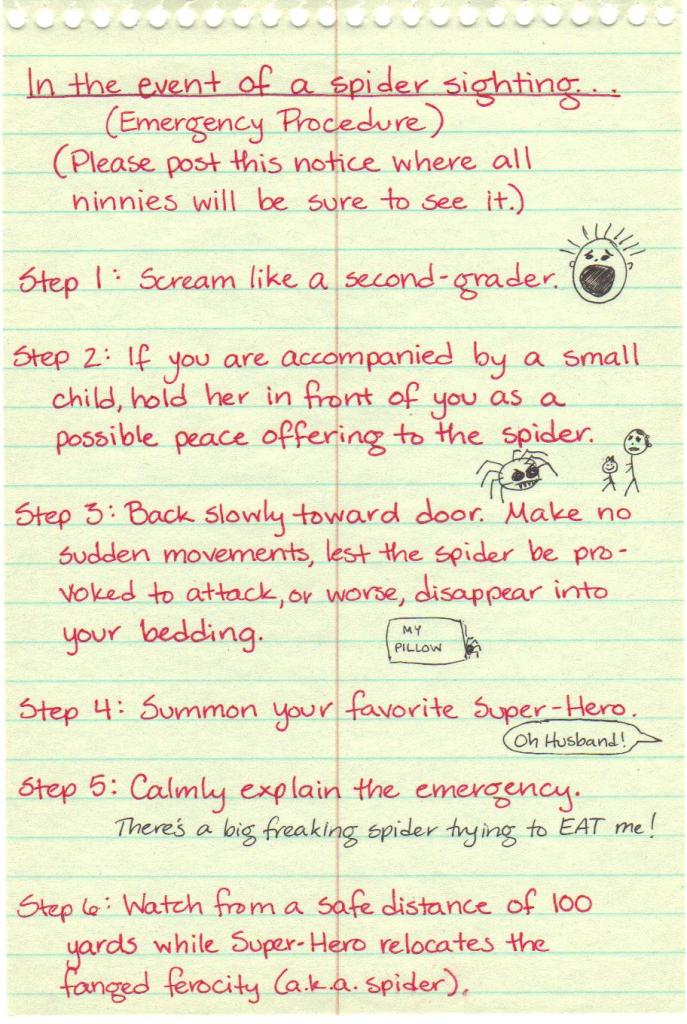 In the event of a spider sighting...
(Emergency Procedure)
(Please post this notice where all
ninnies will be sure to see it.)
Step 1: Scream like a second-grader.
Step 2: If you are accompanied by a small
child, hold her in front of you as a
possible peace offering to the spider.
Step 3: Back slowly toward door. Make no
sudden movements, lest the spider be pro-
voked to attack, or worse, disappear into
your bedding.
MY
PILLOW
Step 4: Summon your favorite Super-Hero.
Oh Husband!
Step 5: Calmly explain the emergency.
There's a big freaking spider trying to EAT me!
Step 6: Watch from a safe distance of 100
yards while Super-Hero relocates the
fanged ferocity (a.k.a. spider).